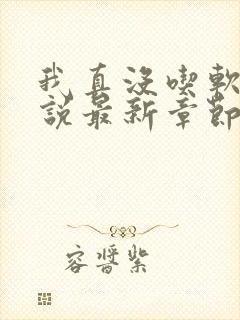 我真沒喫軟
說最新章節
容醬紫